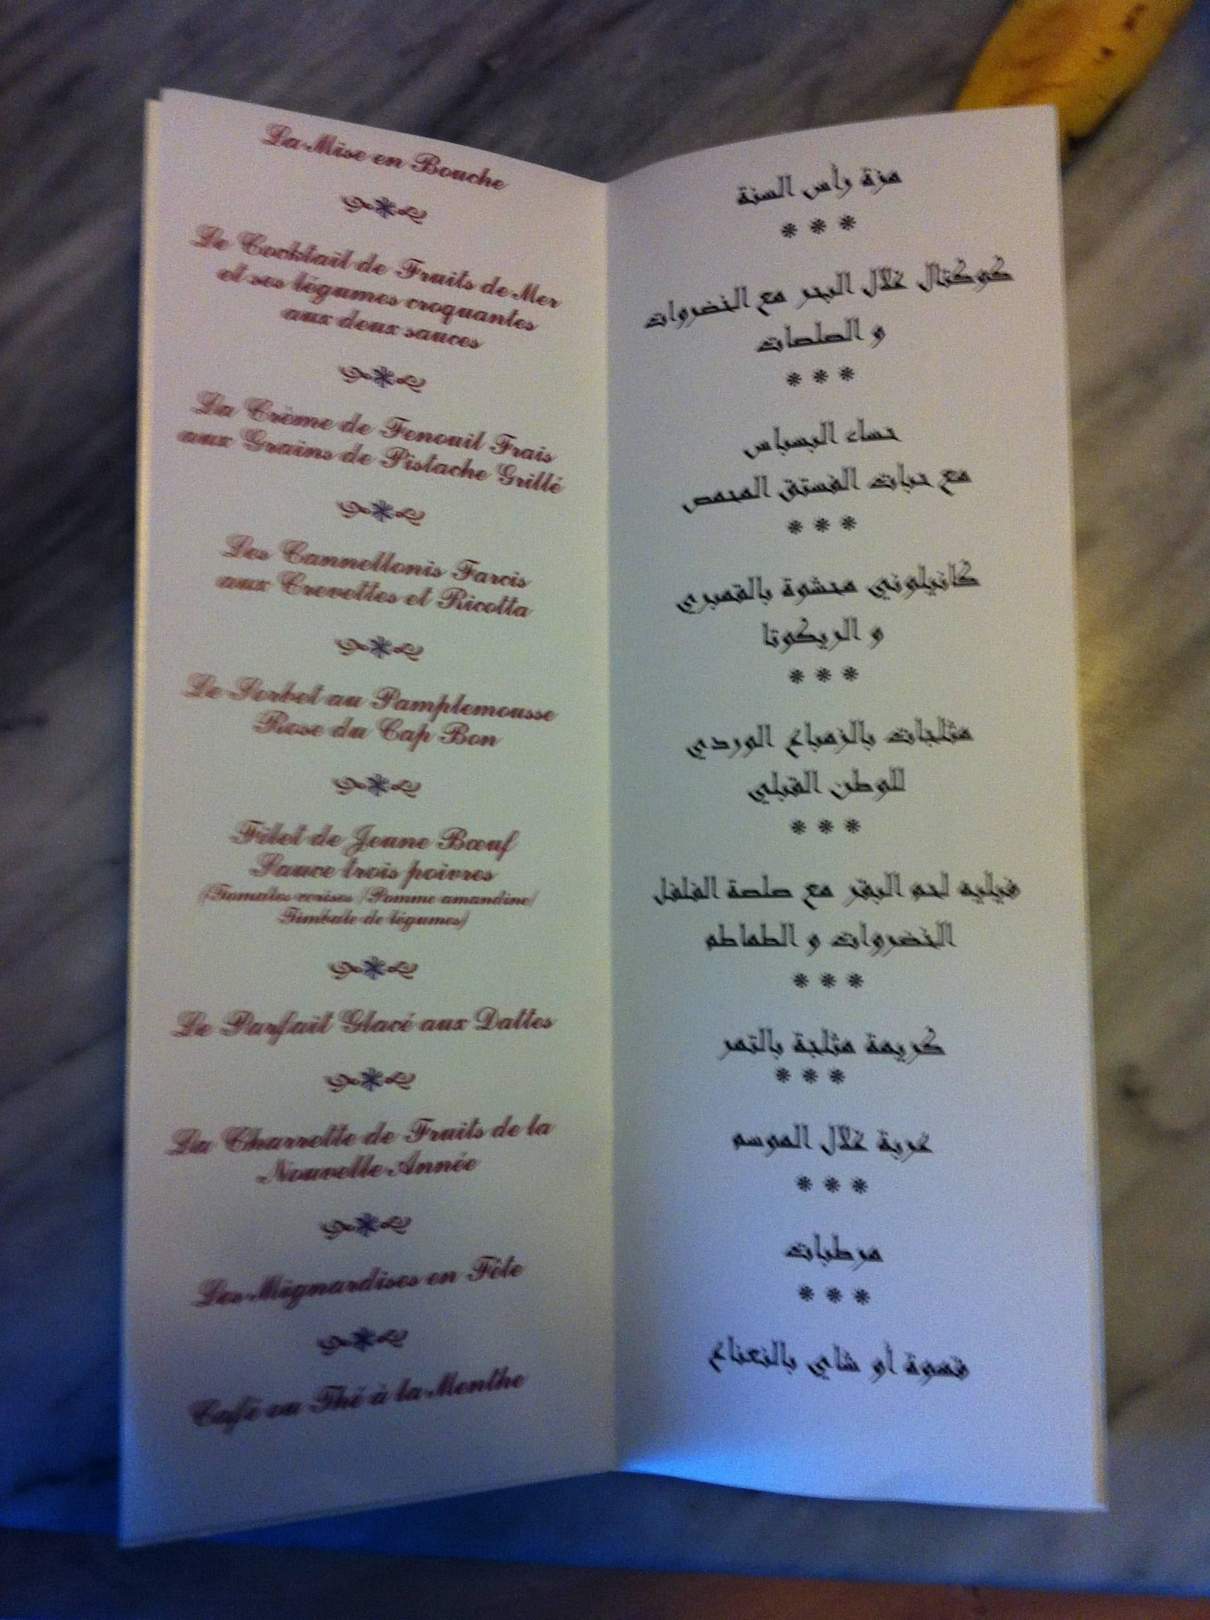 La Mise en Bouche
Le Cocktail de Fruits de Mer
et ses légumes croquantes
aux deux sauces
La Crème de Fenouil Frais
aux Grains de Pistache Grillé
Les Cannellonis Farcis
aux Crevettes et Ricotta
Le Sorbet au Pamplemousse
Rose du Cap Bon
Filet de Jeune Bœuf
Sauce trois poivres
(Tomates cerises /Pomme amandine/
Timbale de légumes)
Le Parfait Glacé aux Dattes
La Charrette de Fruits de la
Nouvelle Année
Les Mignardises en Fête
Café ou Thé à la Menthe
مزة رأس السنة
***
كوكتال غلال البحر مع الخضروات
و الصلصات
***
حساء البسباس
مع حبات الفستق المحمص
***
كانيلوني محشوة بالقمبري
و الريكوتا
***
مثلجات بالزمباع الوردي
للوطن القبلي
***
فيليه لحم البقر مع صلصة الفلفل
الخضروات و الطماطم
***
كريمة مثلجة بالتمر
***
عربة غلال الموسم
***
مرطبات
***
قهوة أو شاي بالنعناع